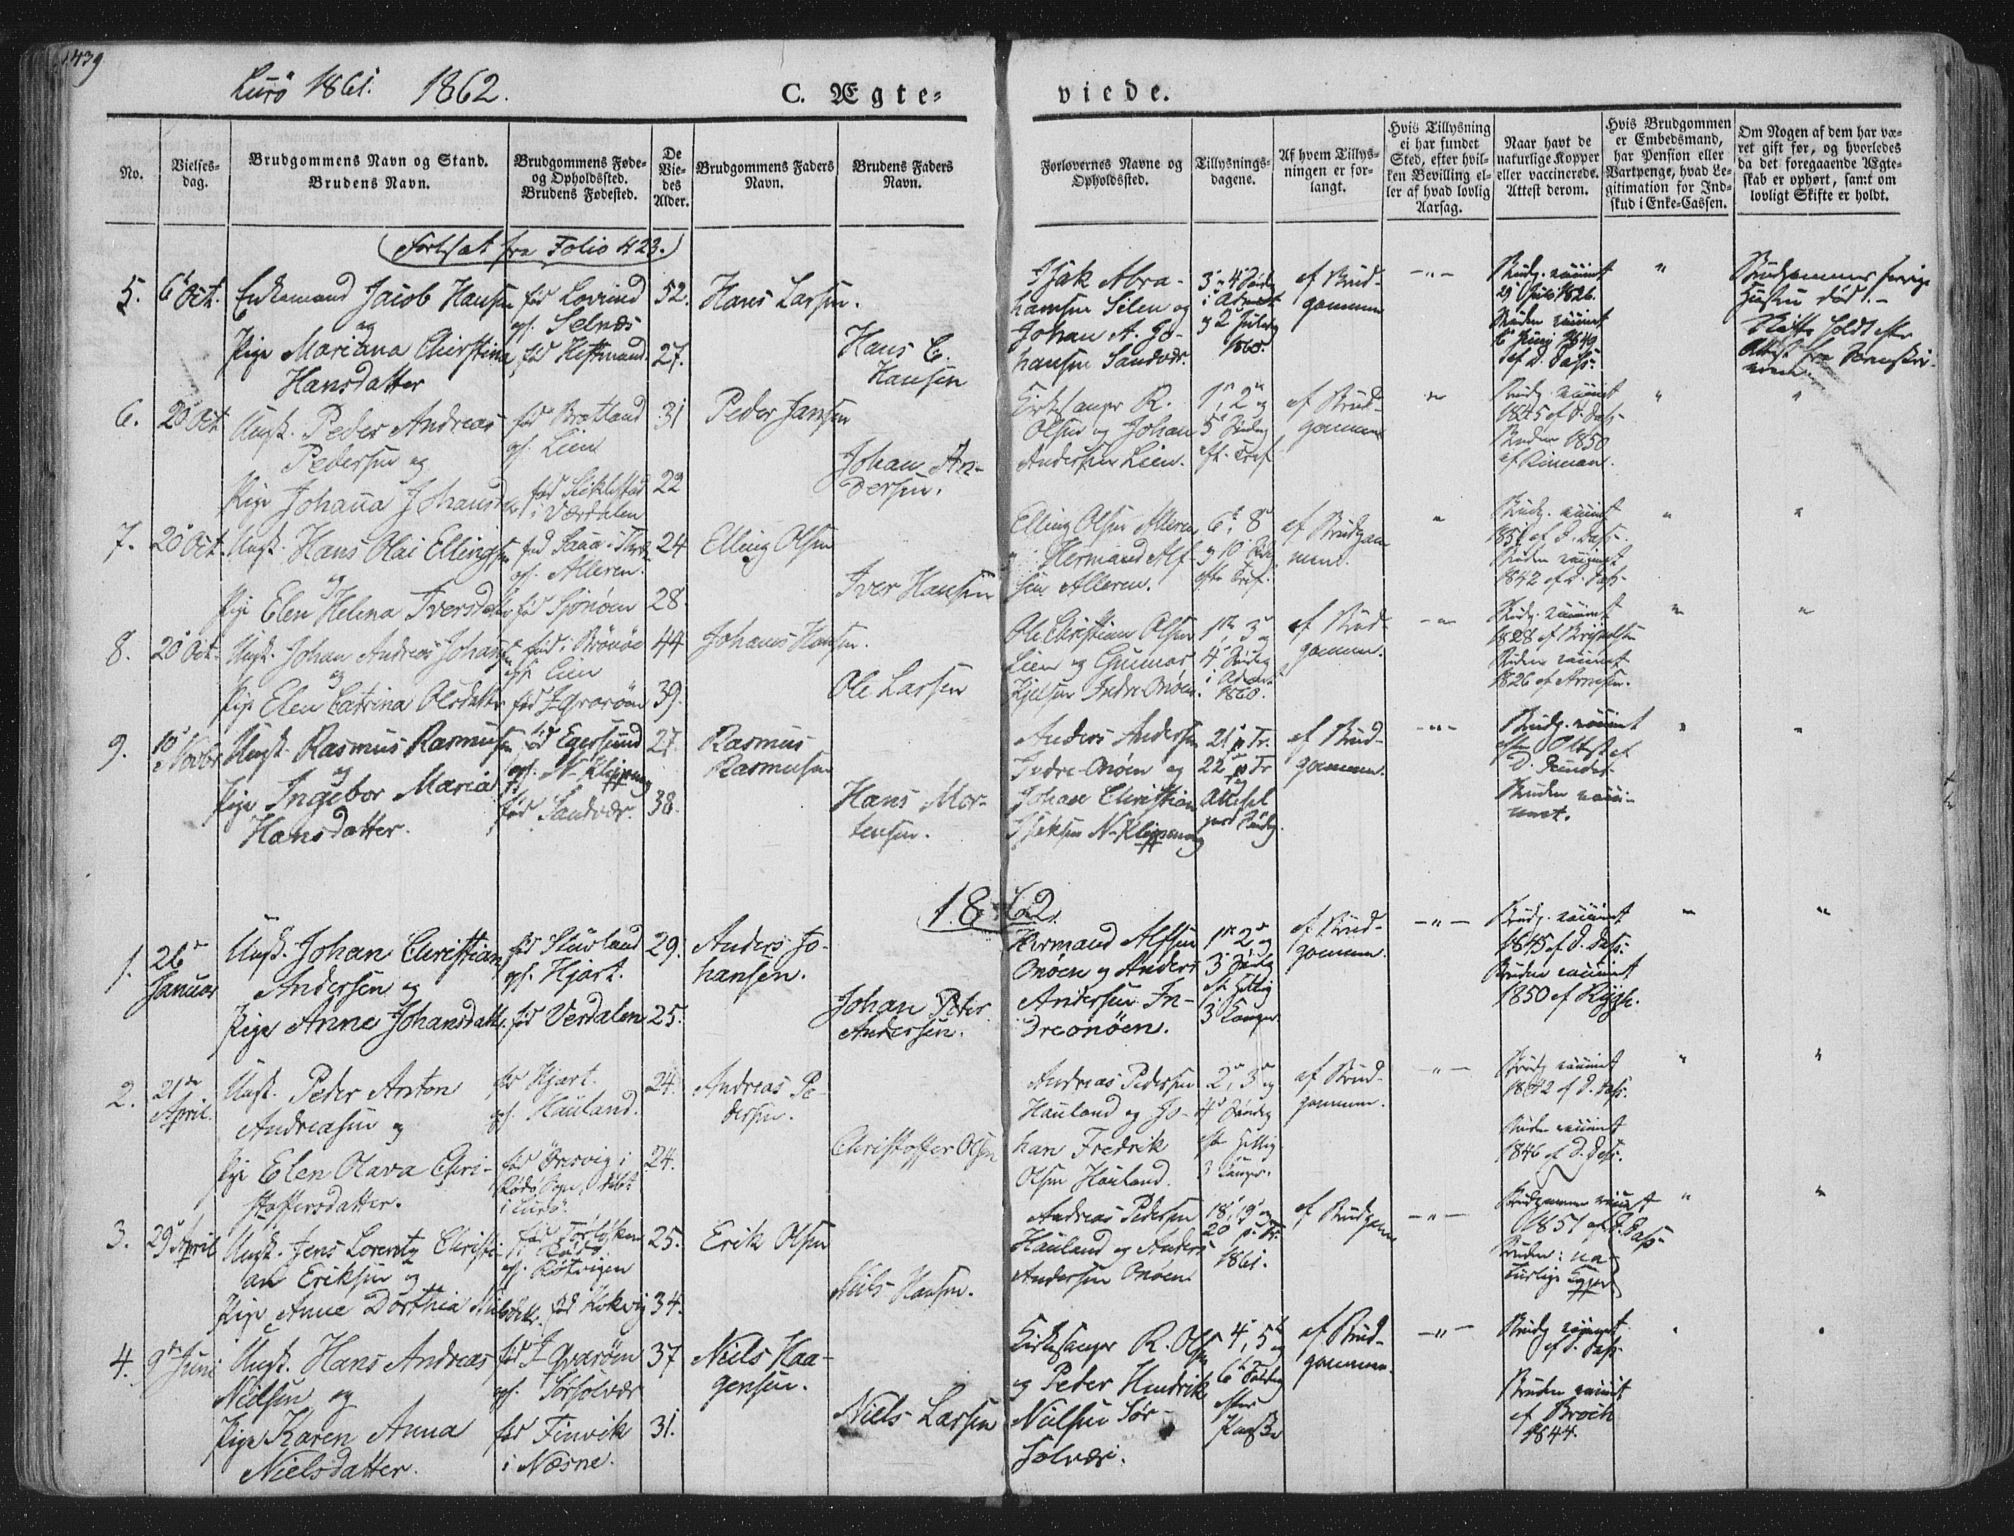 1439
Lurö 1861. 1862.
C. Ægte-
viede.
No.
Vielses-
dag.
Brudgommens Navn og Stand.
Brudens Navn.
Brudgommens Føde-
og Opholdssted.
Brudens Fødested.
De
Vie-
des
Alder.
Brudgommens Faders
Navn.
Brudens Faders
Navn.
Forlovernes Navne og
Opholdssted.
Tillysnings-
dagene.
Af hvem Tillys-
ningen er for-
langt.
Hvis Tillysning
ei har fundet
Sted, efter hvil-
ken Bevilling el-
ler af hvad lovlig
Aarsag.
Naar havt de
naturlige Kopper
eller vaccinerede.
Attest derom.
Hvis Brudgommen
er Embedsmand,
har Pension eller
Vartpenge, hvad Le-
gitimation for Ind-
skud i Enke-Cassen.
Om Nogen af dem har væ-
ret gift før, og hvorledes
da det foregaaende Ægte-
skab er ophørt, samt om
lovligt Skifte er holdt.
(Fortsat fra Folio 423.)
5. 6 Oct. Enkemand Jacob Hansen
og
Pige Mariana Christina
Hansdatter
fød Lovund
gf. Selnæs
fød Hestmand.
52.
27.
Hans Larsen.
Hans C.
Hansen
Isak Abra-
hamsen Selen og
Johan A. Jo-
hansen Sandvær.
3, 4 Søndag
i Advent
1860.
af Brud-
gommen
Brudg. vaccint
1826.
Bruden vaccint
6 Juni 1849
af D. Dass.
"
Brudgommens forrige
Hustru død.
Skifte holdt efter
Attest fra Sorenskri-
veren.
6. 20 Oct. Ungk. Peder Andreas
Pedersen og
Pige Johanna Johansd.
fød Bratland
gf. Lien
fød Stiklestad
i Værdalen
31
22
Peder Jansen
Johan An-
dersen.
Kirkesanger R.
Olsen og Johan
Andersen Lien.
1, 2 og
5 Søndag
eft. Tref.
af Brud-
gommen
Brudg. vaccint
1845 af D. Dass.
Bruden 1850
af
7. 20 Oct. Ungk. Hans Olai Ellingsen
og
Pige Elen Helena Iversdatter
gf. Alleren.
fød Sjonøen
24
28.
Elling Olsen
Iver Hansen
Elling Olsen Alleren
Hermand Alf-
sen Alleren.
6, 8
og 10 Søndag
efter Tref.
af Brudgom-
men.
Brudg. vaccint
1851 af D. Dass.
Bruden vaccint
1842 af D. Dass.
8. 20 Oct. Ungk. Johan Andreas Johansen
og
Pige Elen Catrina Olsdatter
fød i Brönöe
gf. Lien
39.
44
Johans Hansen.
Ole Larsen
Ole Christian Olsen
Lien og Gunnar
Kjelsen Indre Onøen.
1, 3 og
4 Søndag
i Advent
1860.
af Brud-
gommen.
Brudg. vaccint
1828 af
Bruden vaccint
1826 af Arnesen.
9. 10 Novbr Ungk. Rasmus Rasmusen
og
Pige Ingebor Maria
Hansdatter.
fød Egersund
gf. N-Klippeng
fød Sandvær.
27.
38.
Rasmus
Rasmusen
Hans Mor-
tensen.
Anders Andersen
Indre Onøen og
Johan Christian
Isaksen N-Klippeng
21 p Tr.
22 p Tr
og
af Brud-
gommen.
Brudg. vaccint
efter Attest af
D.
Bruden vacci-
neret.
1862.
1. 26 Januar Ungk. Johan Christian
Andersen og
Pige Anne Johansdatter.
fød Stuvland
gf. Hjart.
fød Verdalen
29.
25.
Anders Jo-
hansen.
Johan Peter
Andersen.
Hermand Alfsen
Onøen og Anders
Andersen In-
dreonøen.
1, 2 og
3 Søndag
eft. Hellig
3 Konger.
af Brud-
gommen.
Brudg. vaccint
1845 af D. Dass.
Bruden vaccint
1850 af Rygh.
2. 21de April. Ungk. Peder Anton
Andreasen og
Pige Elen Olava Chri-
stoffersdatter.
fød Hjart.
gf. Hauland.
fød Örsvig i
Rødø
i Lurø.
24.
24.
Andreas Pe-
dersen.
Christoffer Olsen
Andreas Pedersen
Hauland og Jo-
han Fredrik
Olsen Hauland.
2, 3 og
4 Søndag
eft. Hellig
3 Konger.
af Brud-
gommen.
Brudg. vaccint
1842 af D. Dass.
Bruden vaccint
1846 af D. Dass.
3. 29 April Ungk. Jens Lorentz Christi-
an Eriksen og
Pige Anne Dorthia Nielsdtr.
i Rødø
fød Kokvig
25.
34.
Erik Olsen
Niels Hansen.
Andreas Pedersen
Hauland og Anders
Andersen Onøen.
18, 19 og
20 p. Tr.
1861.
af Brudgom
Brudgommen vaccint
1851 af D. Dass.
Bruden: na-
turlige Kopper
4. 9de Juni Ungk. Hans Andreas
Nielsen og
Pige Karen Anna
Nielsdatter.
gf. Sørsolvær
fød Finvik
i Næsne.
37
31.
Niels Haa-
gensen.
Niels Larsen
Kirkesanger R. Olsen
og Peter Hendrik
Nielsen Sør-
solvær.
4, 5 og
6 Søndag
efter
Paaske
af Brud-
gommen.
Brudg vaccint
af D. Dass.
Bruden vaccint
af Broch
1844.